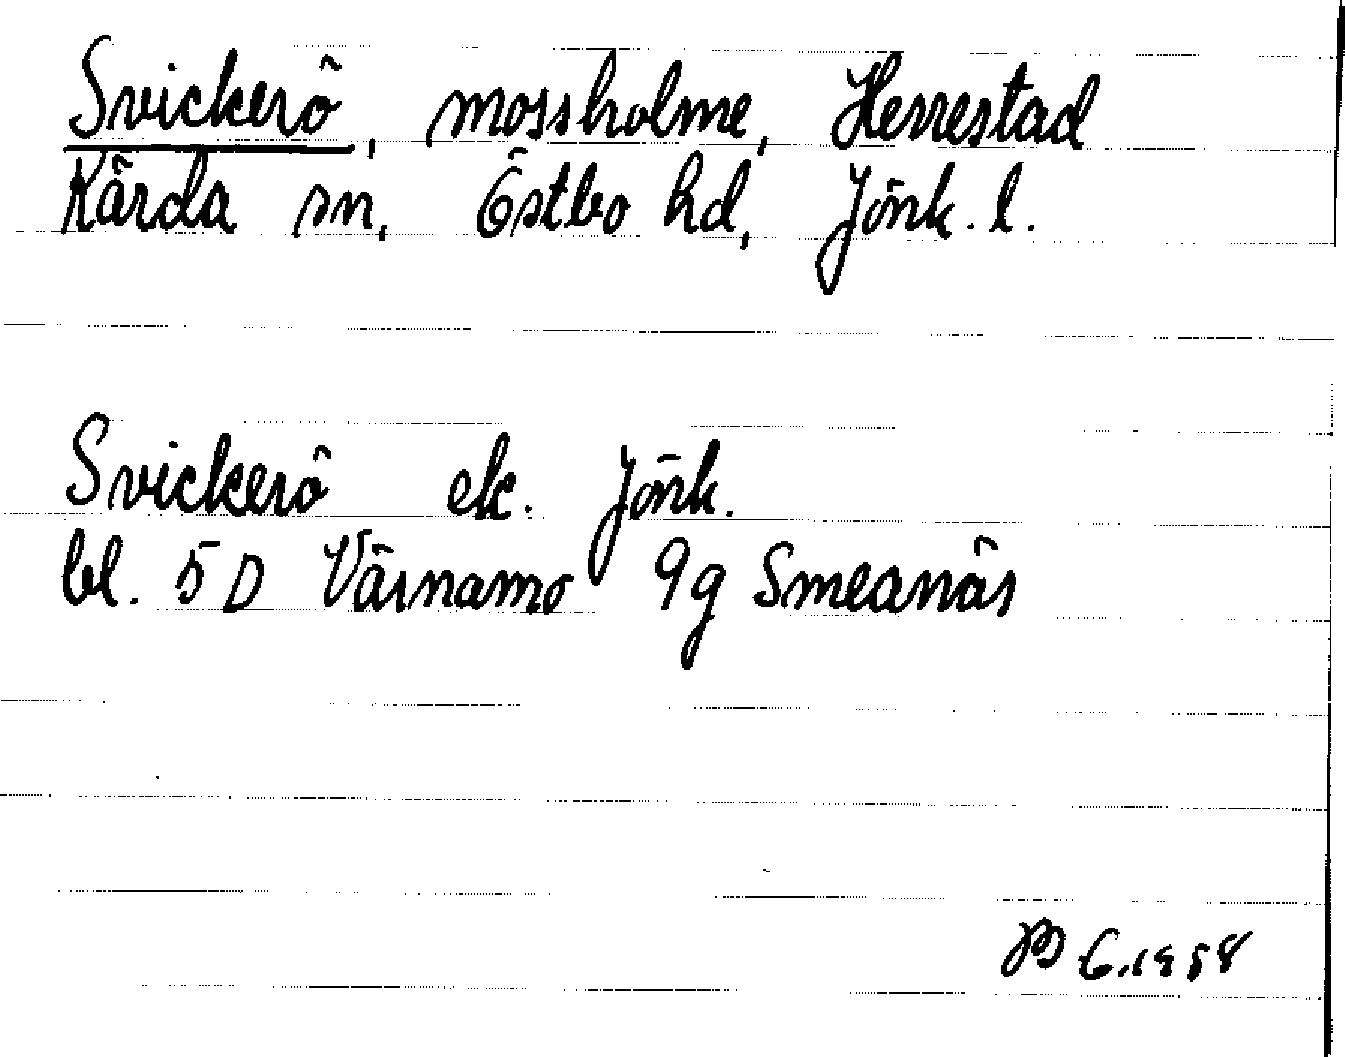 Svickerö, mossholme, Herrestad
Kärda sn, Östbo hd, Jönk. l.
Svickerö ek. Jönk.
bl. 5D Värnamo 9g Smeanäs
6.1958